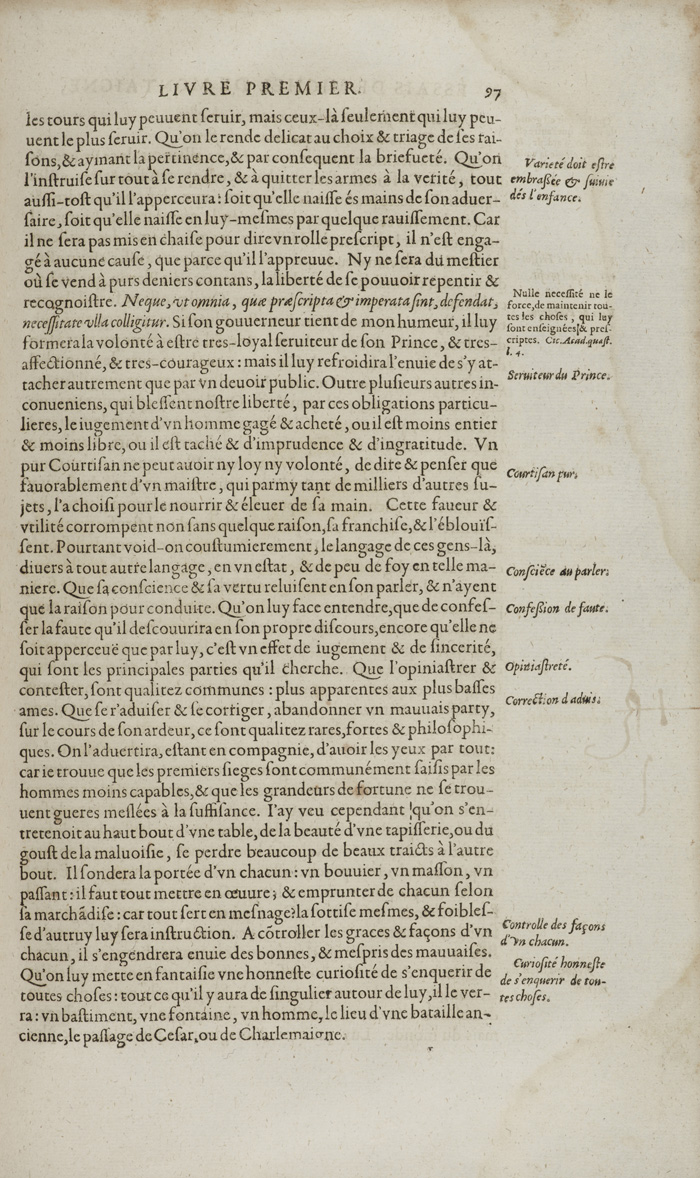 LIVRE PREMIER. 97
les tours qui luy peuuent ſeruir, mais ceux-là ſeulement qui luy peu-
uent le plus ſeruir. Qu'on le rende delicat au choix & triage de ſes rai-
ſons, & aymant la pertinence, & par conſequent la briefueté. Qu'on
l'inſtruiſe ſur tout à ſe rendre, & à quitter les armes à la verité, tout
auſſi-toſt qu'il l'apperceura: ſoit qu'elle naiſſe és mains de ſon aduer-
ſaire, ſoit qu'elle naiſſe en luy-meſmes par quelque rauiſſement. Car
il ne ſera pas mis en chaiſe pour dire vn rolle preſcript, il n'eſt enga-
gé à aucune cauſe, que parce qu'il l'appreuue. Ny ne ſera du meſtier
où ſe vend à purs deniers contans, la liberté de ſe pouuoir repentir &
recognoiſtre. Neque, vt omnia, quæ præſcripta & imperata ſint, defendat,
neceſſitate vlla colligitur. Si ſon gouuerneur tient de mon humeur, il luy
formera la volonté à eſtre tres-loyal ſeruiteur de ſon Prince, & tres-
affectionné, & tres-courageux: mais il luy refroidira l'enuie de s'y at-
tacher autrement que par vn deuoir public. Outre pluſieurs autres in-
conueniens, qui bleſſent noſtre liberté, par ces obligations particu-
lieres, le iugement d'vn homme gagé & acheté, ou il eſt moins entier
& moins libre, ou il eſt taché & d'imprudence & d'ingratitude. Vn
pur Courtiſan ne peut auoir ny loy ny volonté, de dire & penſer que
fauorablement d'vn maiſtre, qui parmy tant de milliers d'autres ſu-
jets, l'a choiſi pour le nourrir & éleuer de ſa main. Cette faueur &
vtilité corrompent non ſans quelque raiſon, ſa franchiſe, & l'éblouïſ-
ſent. Pourtant void-on couſtumierement, le langage de ces gens-là,
diuers à tout autre langage, en vn eſtat, & de peu de foy en telle ma-
niere. Que ſa conſcience & ſa vertu reluiſent en ſon parler, & n'ayent
que la raiſon pour conduite. Qu'on luy face entendre, que de confeſ-
ſer la faute qu'il deſcouurira en ſon propre diſcours, encore qu'elle ne
ſoit apperceuë que par luy, c'eſt vn effet de iugement & de ſincerité,
qui ſont les principales parties qu'il cherche. Que l'opiniaſtrer &
conteſter, ſont qualitez communes: plus apparentes aux plus baſſes
ames. Que ſe r'aduiſer & ſe corriger, abandonner vn mauuais party,
ſur le cours de ſon ardeur, ce ſont qualitez rares, fortes & philoſophi-
ques. On l'aduertira, eſtant en compagnie, d'auoir les yeux par tout:
car ie trouue que les premiers ſieges ſont communément ſaiſis par les
hommes moins capables, & que les grandeurs de fortune ne ſe trou-
uent gueres meſlées à la ſuffiſance. I'ay veu cependant qu'on s'en-
tretenoit au haut bout d'vne table, de la beauté d'vne tapiſſerie, ou du
gouſt de la maluoiſie, ſe perdre beaucoup de beaux traicts à l'autre
bout. Il ſondera la portée d'vn chacun: vn bouuier, vn maſſon, vn
paſſant: il faut tout mettre en œuure; & emprunter de chacun ſelon
ſa marchãdiſe: car tout ſert en meſnage: la ſottiſe meſmes, & foibleſ-
ſe d'autruy luy ſera inſtruction. A cõtroller les graces & façons d'vn
chacun, il s'engendrera enuie des bonnes, & meſpris des mauuaiſes.
Qu'on luy mette en fantaiſie vne honneſte curioſité de s'enquerir de
toutes choſes: tout ce qu'il y aura de ſingulier autour de luy, il le ver-
ra: vn baſtiment, vne fontaine, vn homme, le lieu d'vne bataille an-
cienne, le paſſage de Ceſar, ou de Charlemaigne.
Varieté doit eſtre
embraſſée & ſuiuie
dés l'enfance.
Nulle neceſſité ne le
force, de maintenir tou-
tes les choſes, qui luy
ſont enſeignées & preſ-
criptes. Cic. Acad. quæſt.
l. 4.
Seruiteur du Prince.
Courtiſan pur,
Conſciẽce au parler.
Confeſſion de faute.
Opiniaſtreté.
Correction d'aduis.
Controlle des façons
d'vn chacun.
Curioſité honneſte
de s'enquerir de tou-
tes choſes.